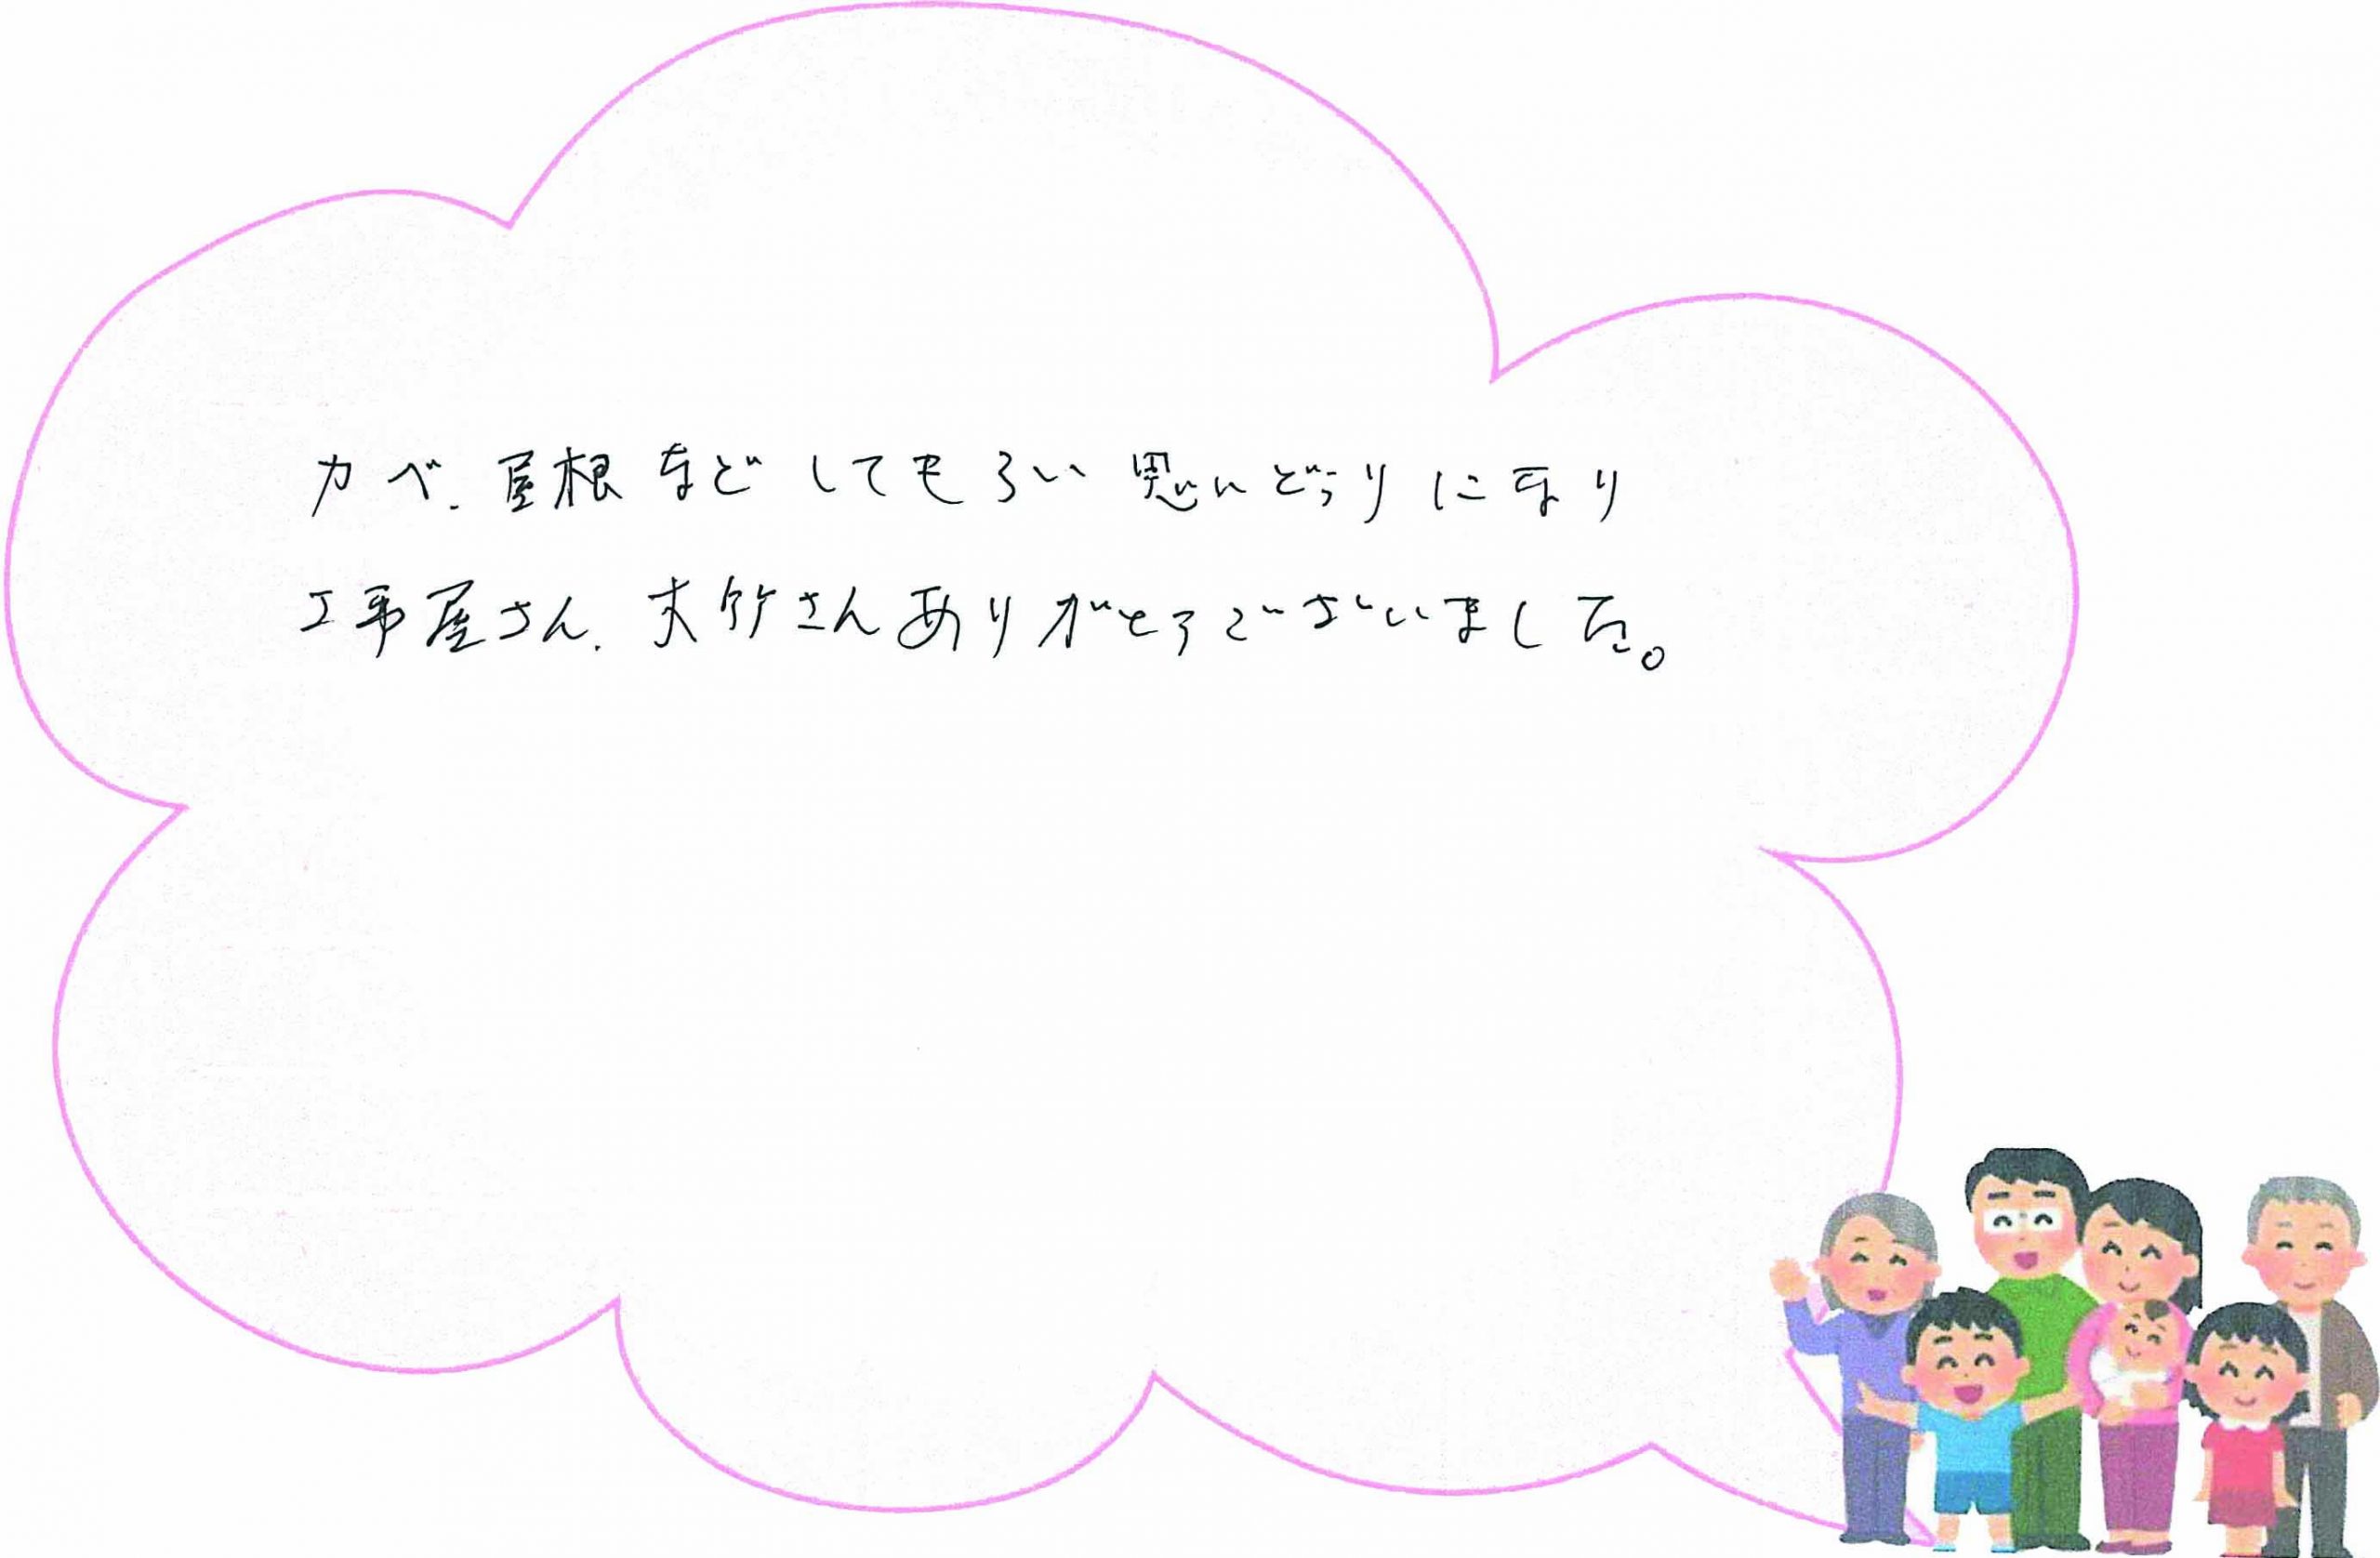 カベ、屋根などしてもらい思いどうりになり
工事屋さん、大竹さんありがとうございました。